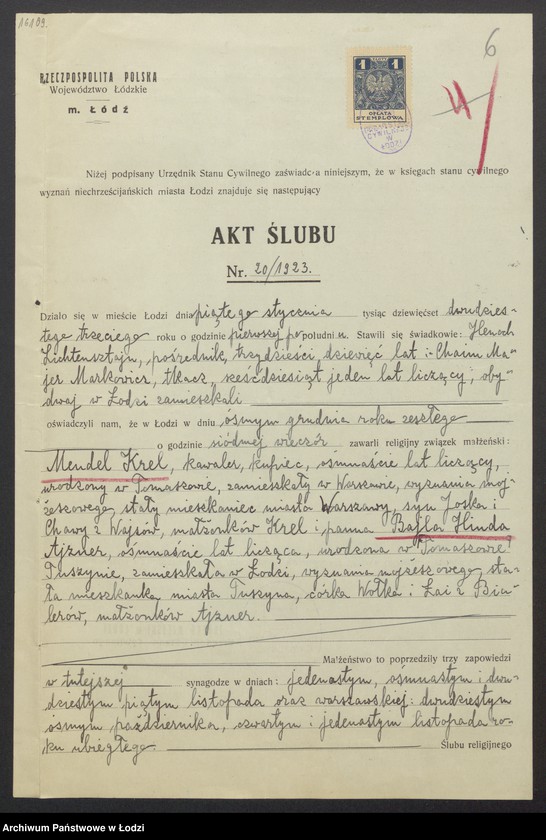 16189.
6
RZECZPOSPOLITA POLSKA
Województwo Łódzkie
m. ŁÓDŹ
1 ZŁOTY 1
OPŁATA
STEMPLOWA
Niżej podpisany Urzędnik Stanu Cywilnego zaświadcza niniejszym, że w księgach stanu cywilnego
wyznań niechrześcijańskich miasta Łodzi znajduje się następujący
AKT ŚLUBU
Nr. 20/1923.
Działo się w mieście Łodzi dnia piątego stycznia tysiąc dziewięćset dwudzies-
tego trzeciego roku o godzinie pierwszej po południu. Stawili się świadkowie: Henoch
Lichtensztajn, pośrednik, trzydzieści dziewięć lat i Chaim Ma-
jer Markowicz, tkacz, sześćdziesiąt jeden lat liczący, oby-
dwaj w Łodzi zamieszkali
oświadczyli nam, że w Łodzi w dniu ósmym grudnia roku zeszłego
o godzinie siódmej wieczór zawarli religijny związek małżeński:
Mendel Krel, kawaler, kupiec, ośmnaście lat liczący,
urodzony w Tomaszowie, zamieszkały w Warszawie, wyznania moj-
żeszowego, stały mieszkaniec miasta Warszawy, syn Joska i
Chawy z Wajsów, małżonków Krel i panna Bajla Hinda
Ajzner, ośmnaście lat licząca, urodzona w Tomaszowie
Tuszynie, zamieszkała w Łodzi, wyznania mojżeszowego, sta-
ła mieszkanka miasta Tuszyna, córka Wolka i Łai z
małżonków Ajzner.
Małżeństwo to poprzedziły trzy zapowiedzi
w tutejszej synagodze w dniach: jedenastym, ośmnastym i dwu-
dziestym piątym listopada oraz warszawskiej: dwudziestym
ósmym października, czwartym i jedenastym listopada ro-
ku ubiegłego. Ślubu religijnego
Archiwum Państwowe w Łodzi